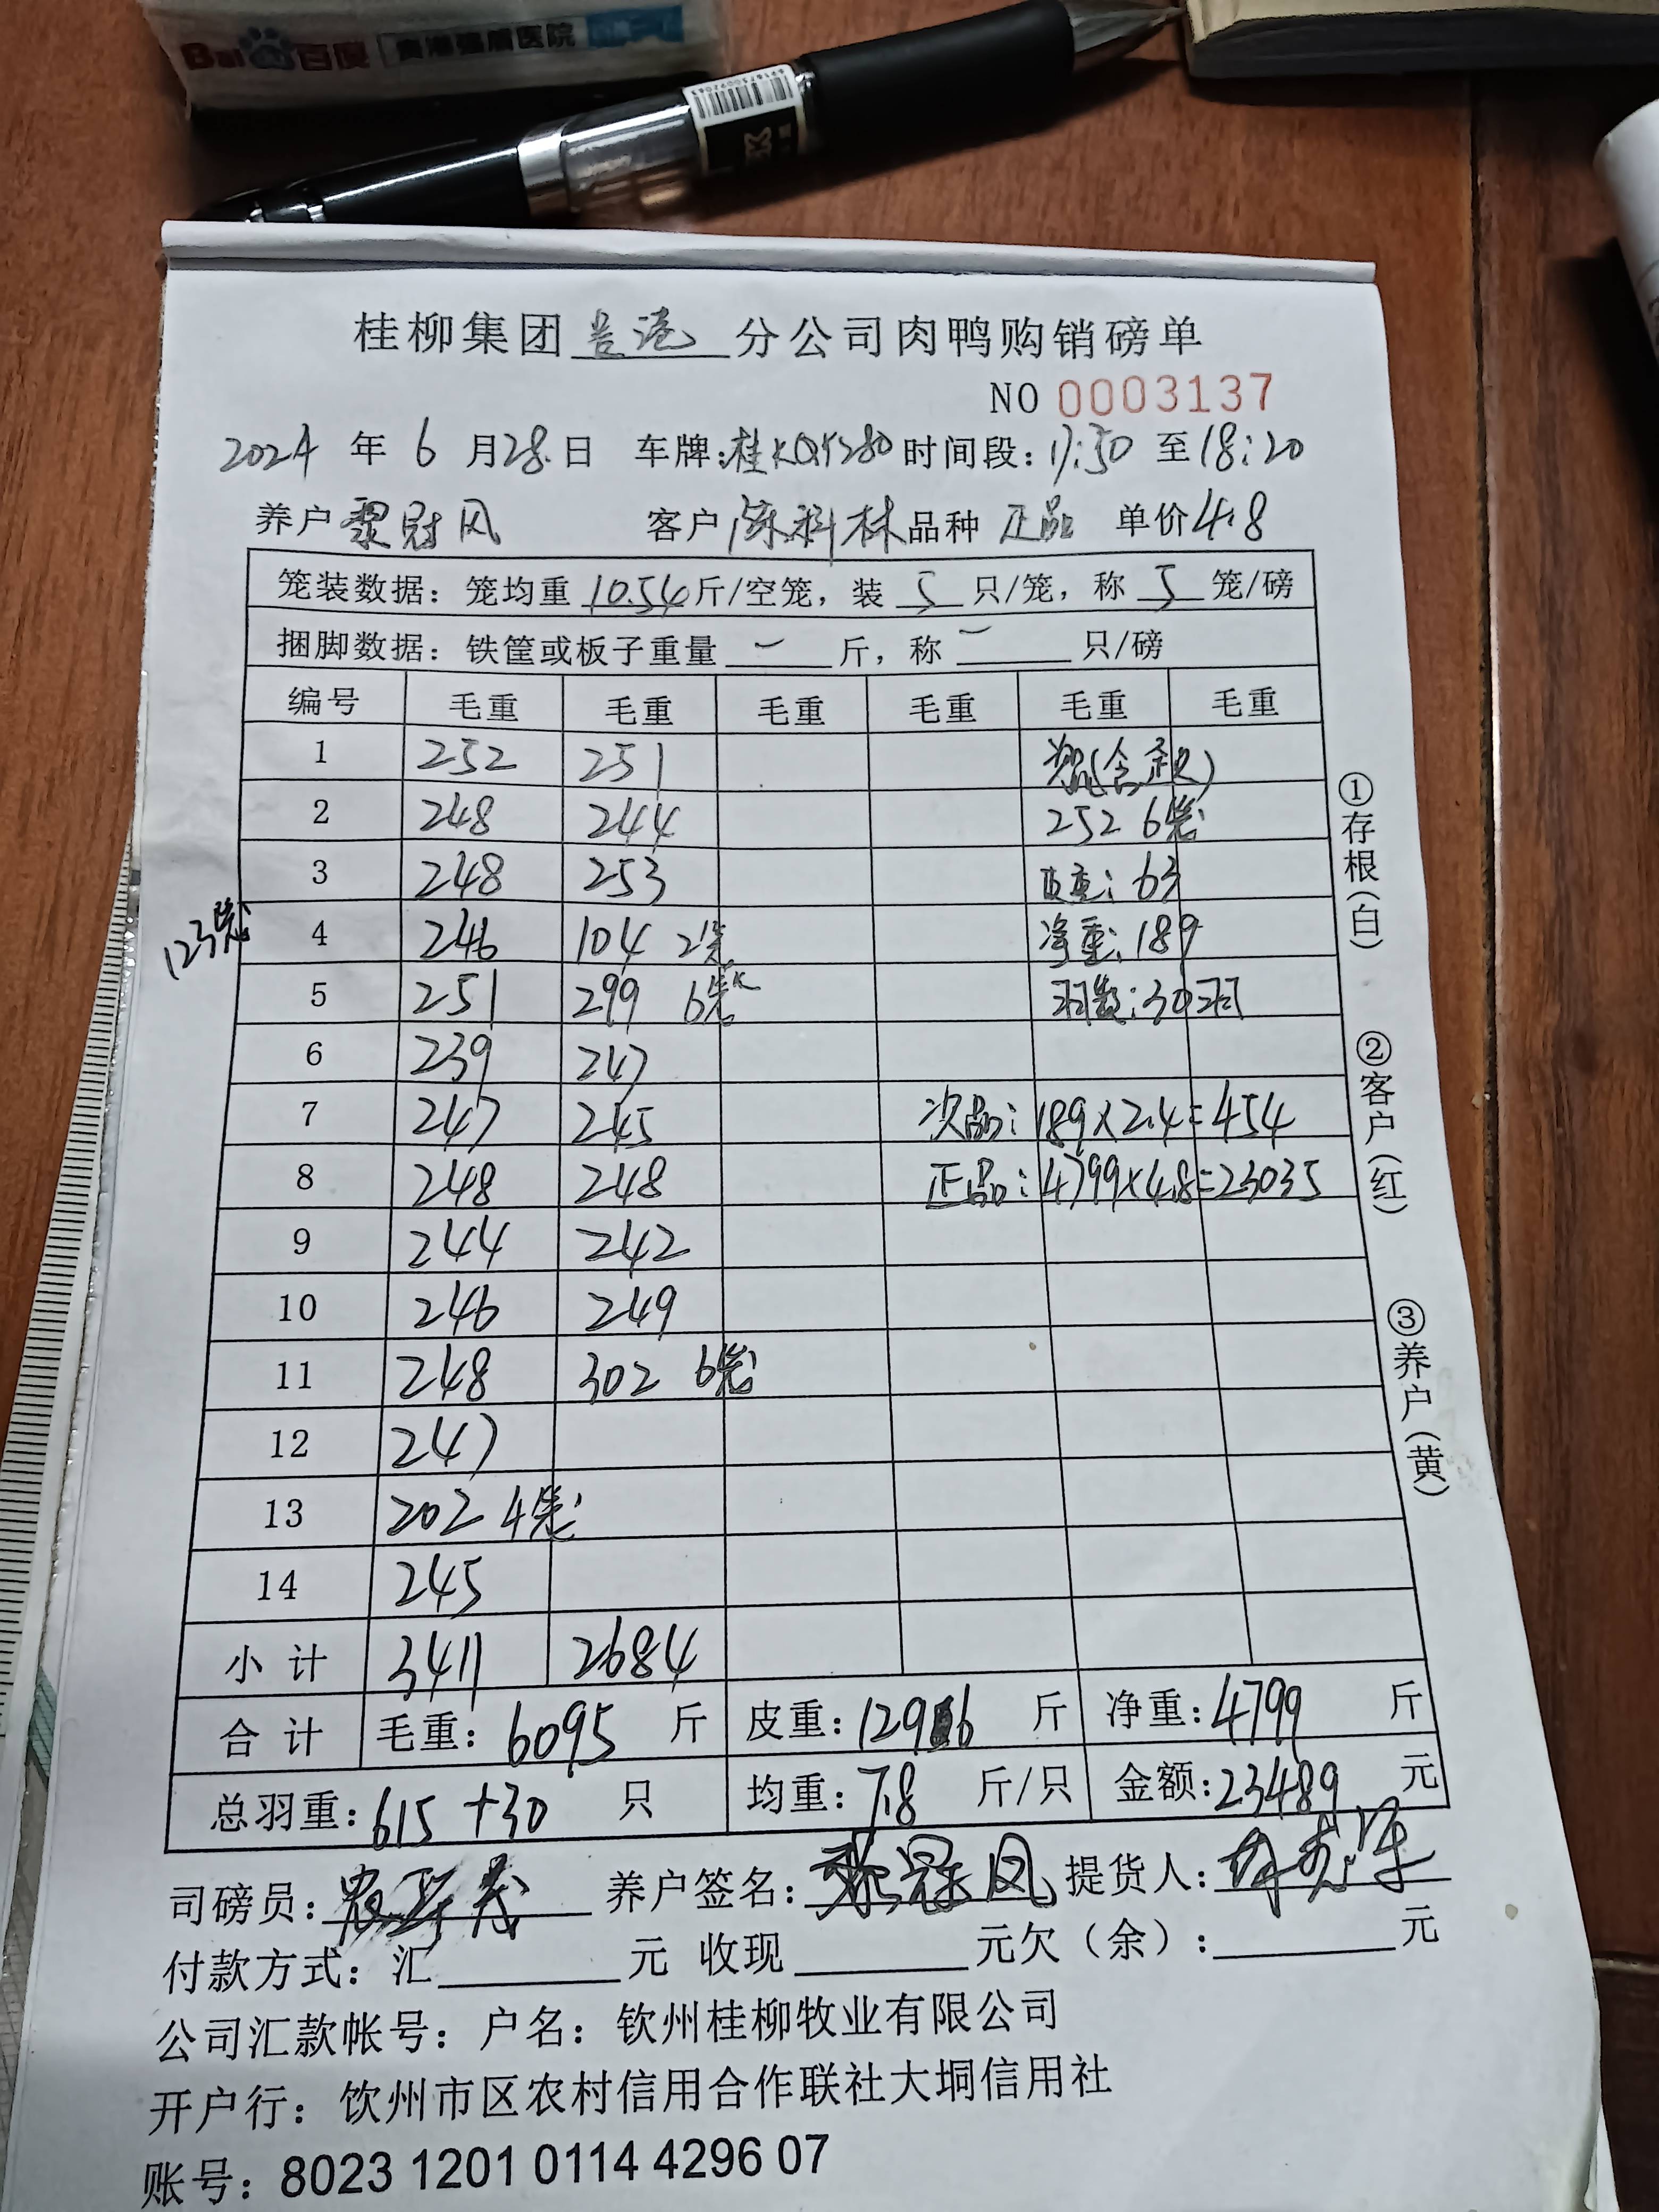 Bai百度 贵港强盾医院
桂柳集团贵港分公司肉鸭购销磅单
NO 0003137
2024年6月28日 车牌:桂KQY280 时间段:17:50至18:20
养户 黎冠凤 客户 陈科林 品种 正品 单价4.8
笼装数据:笼均重10.54斤/空笼,装5只/笼,称5笼/磅
捆脚数据:铁筐或板子重量 — 斤,称 — 只/磅
编号 毛重 毛重 毛重 毛重 毛重 毛重
1 252 251 次品(含残)
2 248 244 252 6笼
3 248 253 皮重:63
123笼 4 246 104 2笼 净重:189
5 251 299 6笼 羽数:30羽
6 239 247
7 247 245 次品:189×2.4=454
8 248 248 正品:4799×4.8=23035
9 244 242
10 246 249
11 248 302 6笼
12 247
13 202 4笼
14 245
小计 3411 2684
合计 毛重:6095斤 皮重:1296斤 净重:4799斤
总羽重:615+30只 均重:7.8斤/只 金额:23489元
司磅员: 养户签名:黎冠凤 提货人:
付款方式:汇 元 收现 元欠(余): 元
公司汇款帐号:户名:钦州桂柳牧业有限公司
开户行:钦州市区农村信用合作联社大垌信用社
账号:8023 1201 0114 4296 07
①存根(白)
②客户(红)
③养户(黄)